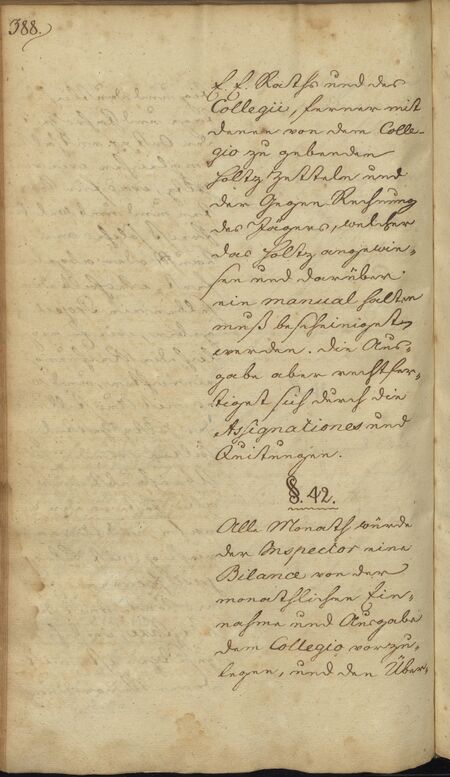 388.
E. E. Raths und des
Collegii, ferner mit
denen von dem Colle-
gio zu gebenden
Holtz Zetteln und
der Gegen Rechnung
des Jägers, welcher
das Holtz angewie-
sen und darüber
ein manual halten
muß bescheiniget
werden. Die Aus-
gabe aber rechtfer-
tiget sich durch die
Assignationes und
Quitungen.
§. 42.
Alle Monath würde
der Inspector eine
Bilance von der
monathlichen Ein-
nahme und Ausgabe
dem Collegio vorzu-
legen, und den Über-